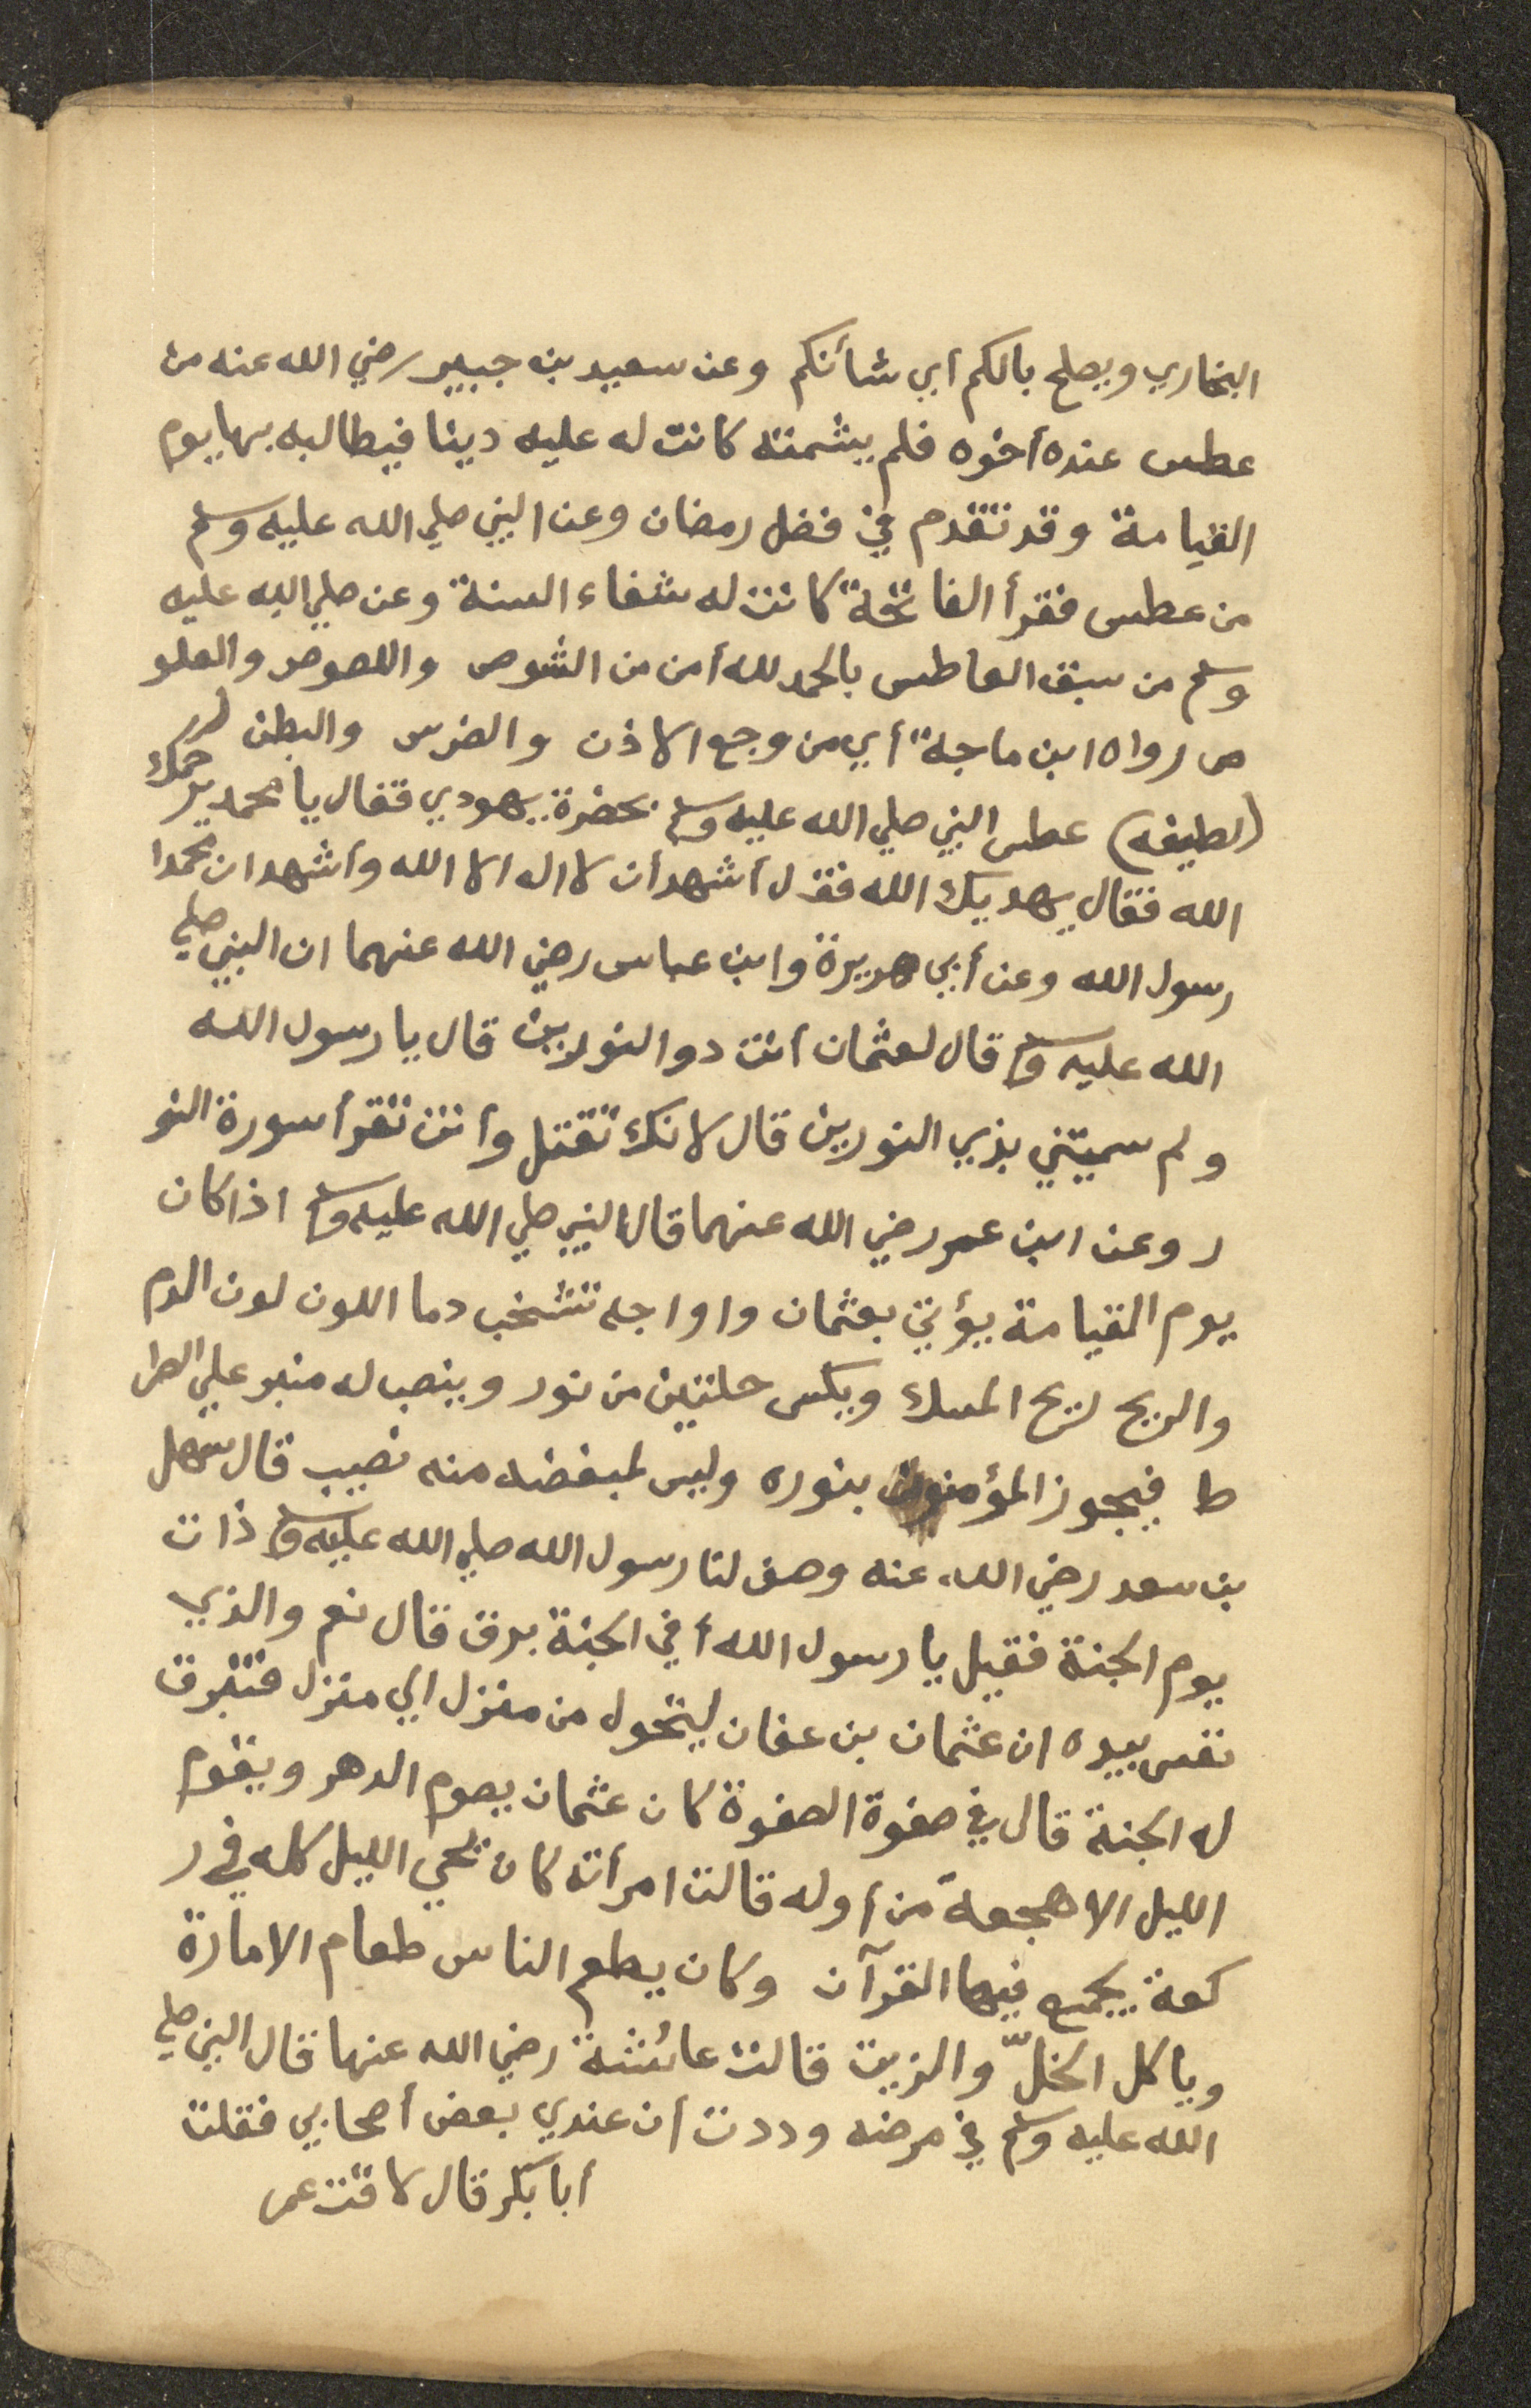 البخاري ويصلح بالكم أي شأنكم وعن سعيد بن جبير رضي الله عنه من
عطس عنده أخوه فلم يشمته كانت له عليه دينا فيطالبه بها يوم
القيامة وقد تقدم في فضل رمضان وعن النبي صلي الله عليه وسلم
من عطس فقرأ الفاتحة كانت له شفاء السنة وعن صلي الله عليه
وسلم من سبق العاطس بالحمد لله أمن من الشوص واللصوص والعلو
ص رواه ابن ماجة أي من وجع الاذن والضرس والبطن
(لطيفه) عطس النبي صلي الله عليه وسلم بحضرة يهودي فقال يا محمد يرحمك
الله فقال يهديك الله فقال أشهد أن لا اله الا الله وأشهد ان محمدا
رسول الله وعن أبي هريرة وابن عباس رضي الله عنهما ان النبي صلي
الله عليه وسلم قال لعثمان أنت دوالنورين قال يا رسول الله
ولم سميتني بذي النورين قال لانك تقتل وأنت تقرأ سورة النو
ر وعن ابن عمر رضي الله عنهما قال النبي صلي الله عليه وسلم اذا كان
يوم القيامة يؤتي بعثمان واواجه تشخب دما اللون لون الدم
والريح لريح المسك ويكس حلتين من نور وينصب له منبر علي الصرا
ط فيجوز المؤمنون بنوره وليس لمبغضه منه نصيب قال سهل
بن سعد رضي الله عنه وصف لنا رسول الله صلي الله عليه وسلم ذات
يوم الجنة فقيل يا رسول الله أفي الجنة برق قال نعم والذي
نفس بيده ان عثمان بن عفان ليتحول من منزل الي منزل فتبرق
له الجنة قال في صفوة الصفوة كان عثمان يصوم الدهر ويقوم
الليل الا هجعة من أوله قالت امرأته كان يحي الليل كله في ر
كعة يجمع فيها القرآن وكان يطعم الناس طعام الامارة
وياكل الخلّ والزيت قالت عائشة رضي الله عنها قال النبي صلي
الله عليه وسلم في مرضه وددت أن عندي بعض أصحابي فقلت
أبا بكر قال لا قلت عمر